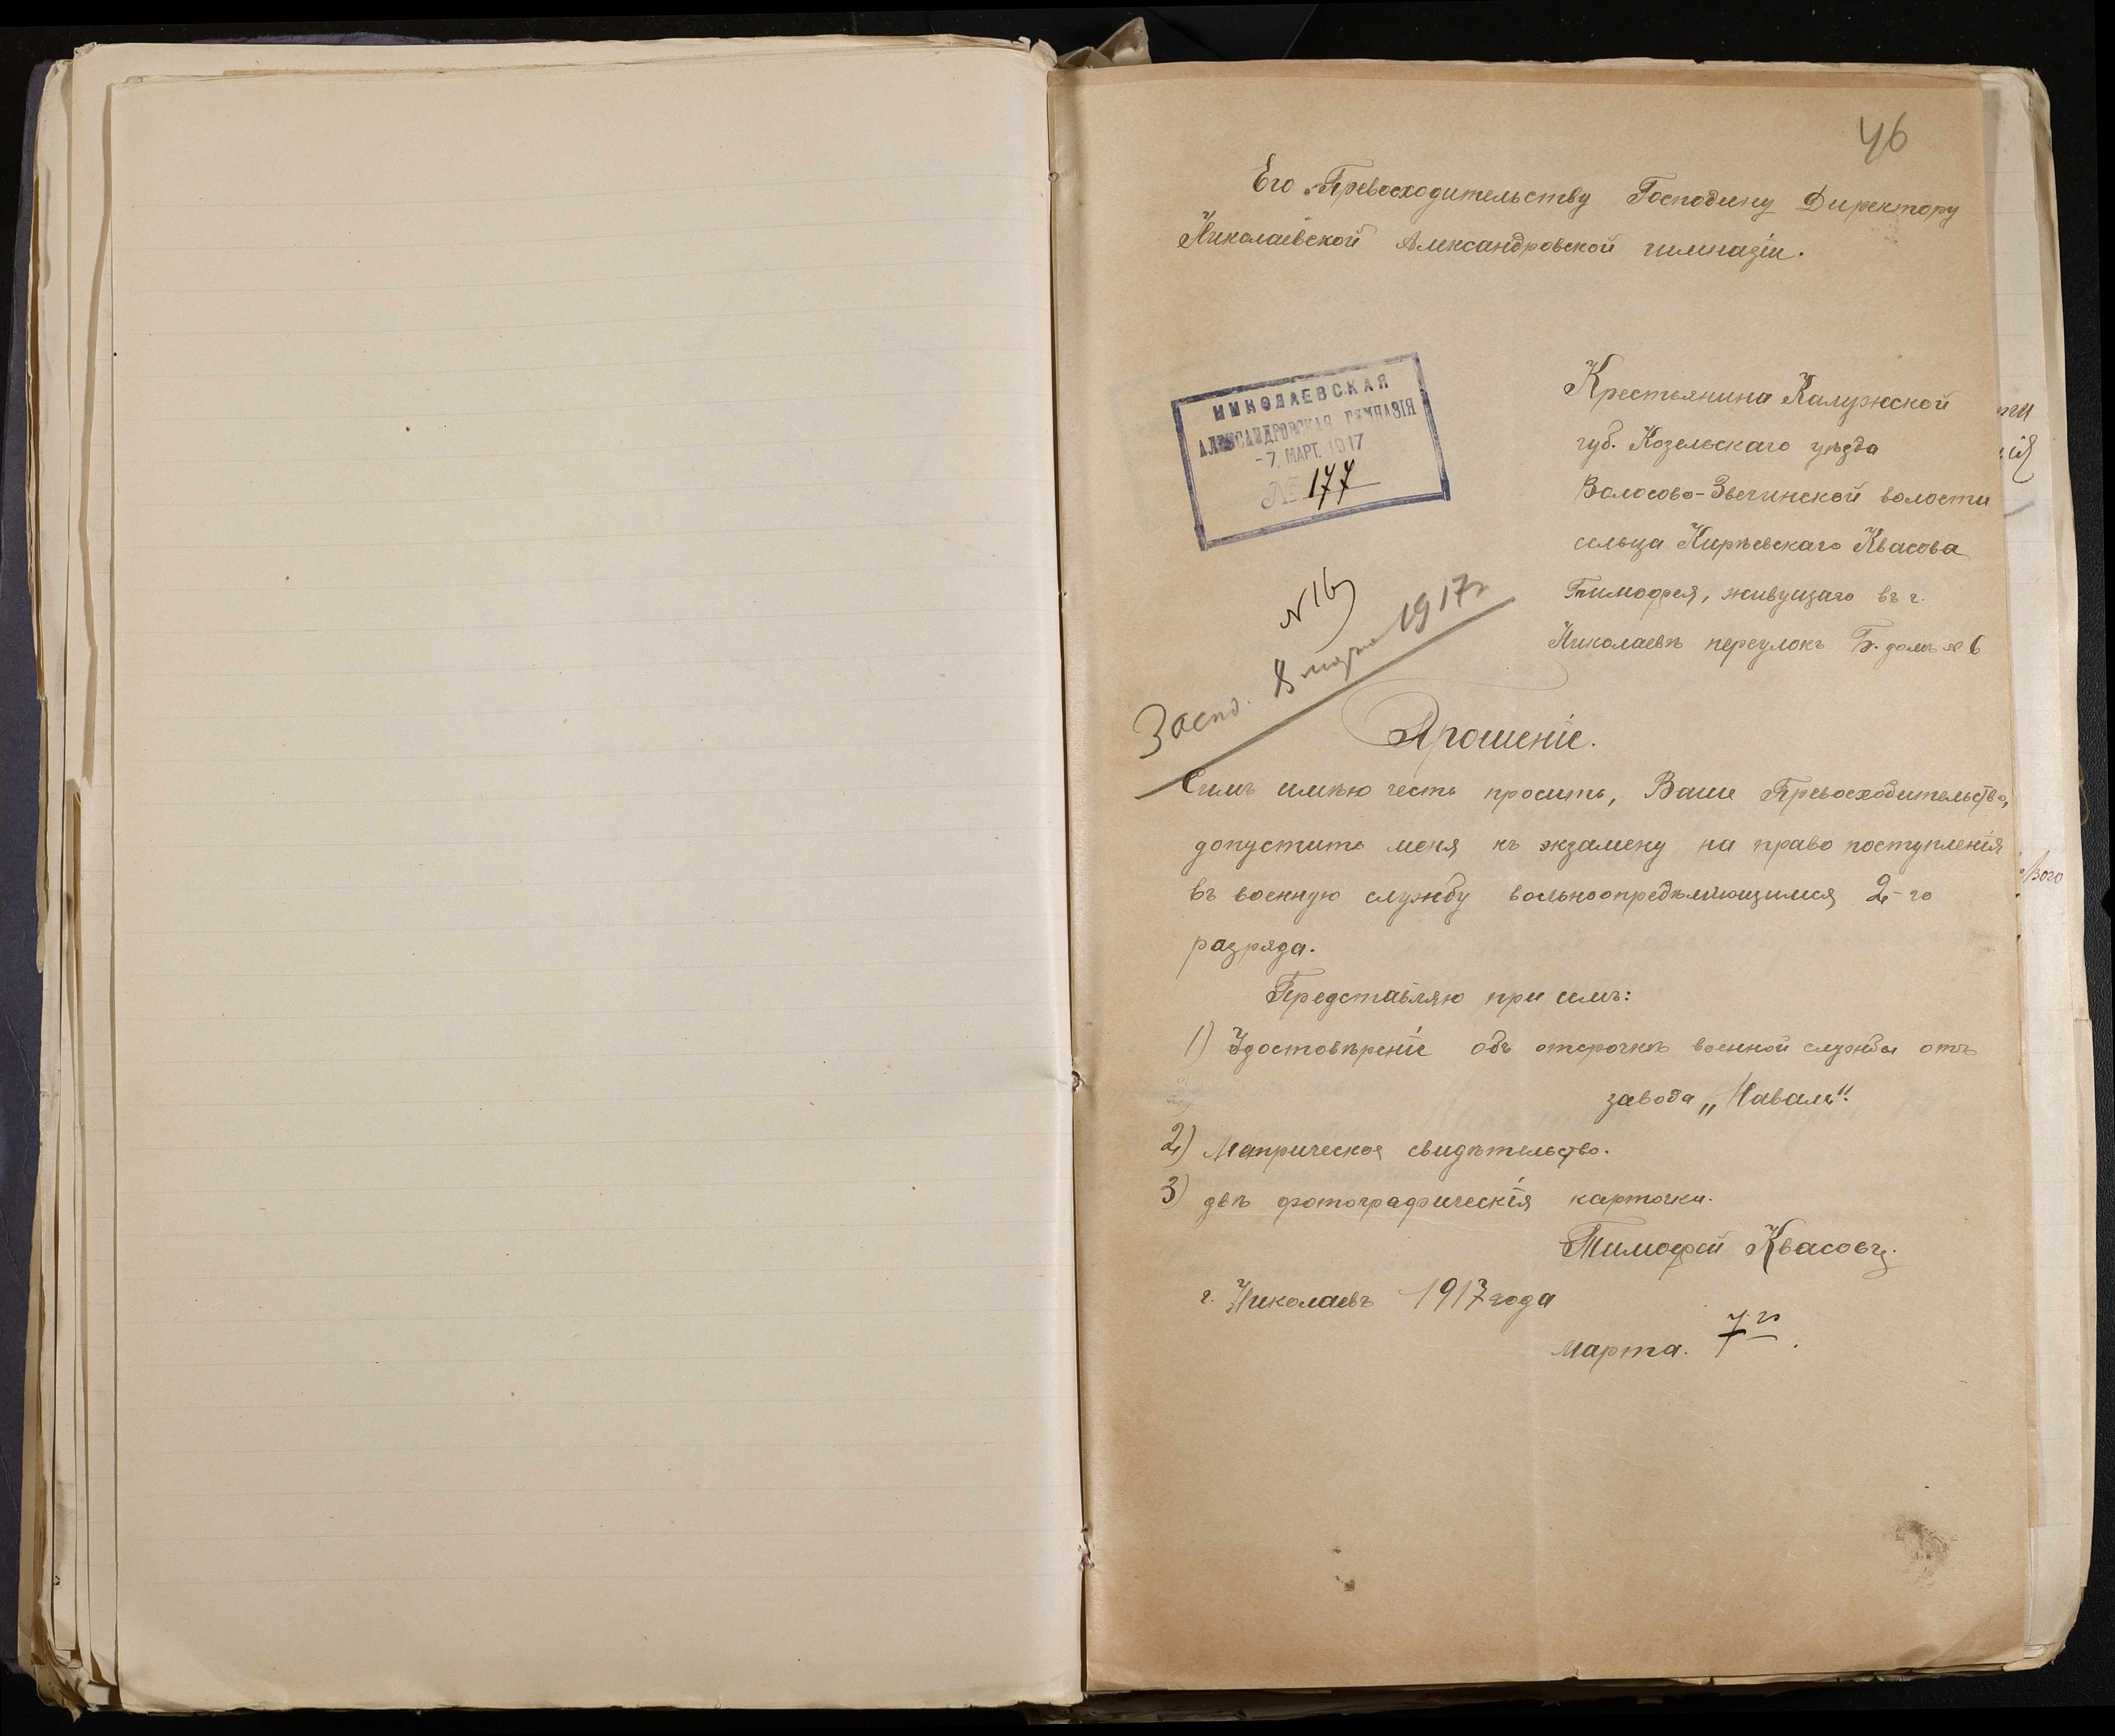 46
Его Превосходительству Господину Директору
Николаевской Александровской гимназіи.
НИКОЛАЕВСКАЯ
АЛЕКСАНДРОВСКАЯ ГИМНАЗІЯ
-7. МАРТ. 1917
№ 177
Крестьянина Калужской
губ. Козельскаго уѣзда
Волосово-Звягинской волости
сельца Кирѣевскаго Квасова
Тимофея, живущаго въ г.
Николаевѣ переулокъ Б. домъ № 6
N 16
Засѣд. 8 марта 1917г
Прошеніе.
Симъ имѣю честь просить, Ваше Превосходительство,
допустить меня къ экзамену на право поступленія
въ военную службу вольноопредѣляющимся 2-го
разряда.
Представляю при семъ:
1) Удостовѣреніе объ отсрочкѣ военной службы отъ
завода „Наваль".
2) Метрическое свидѣтельство.
3) двѣ фотографическія карточки.
Тимофей Квасовъ.
г. Николаевъ 1917 года
Марта. 7 го.